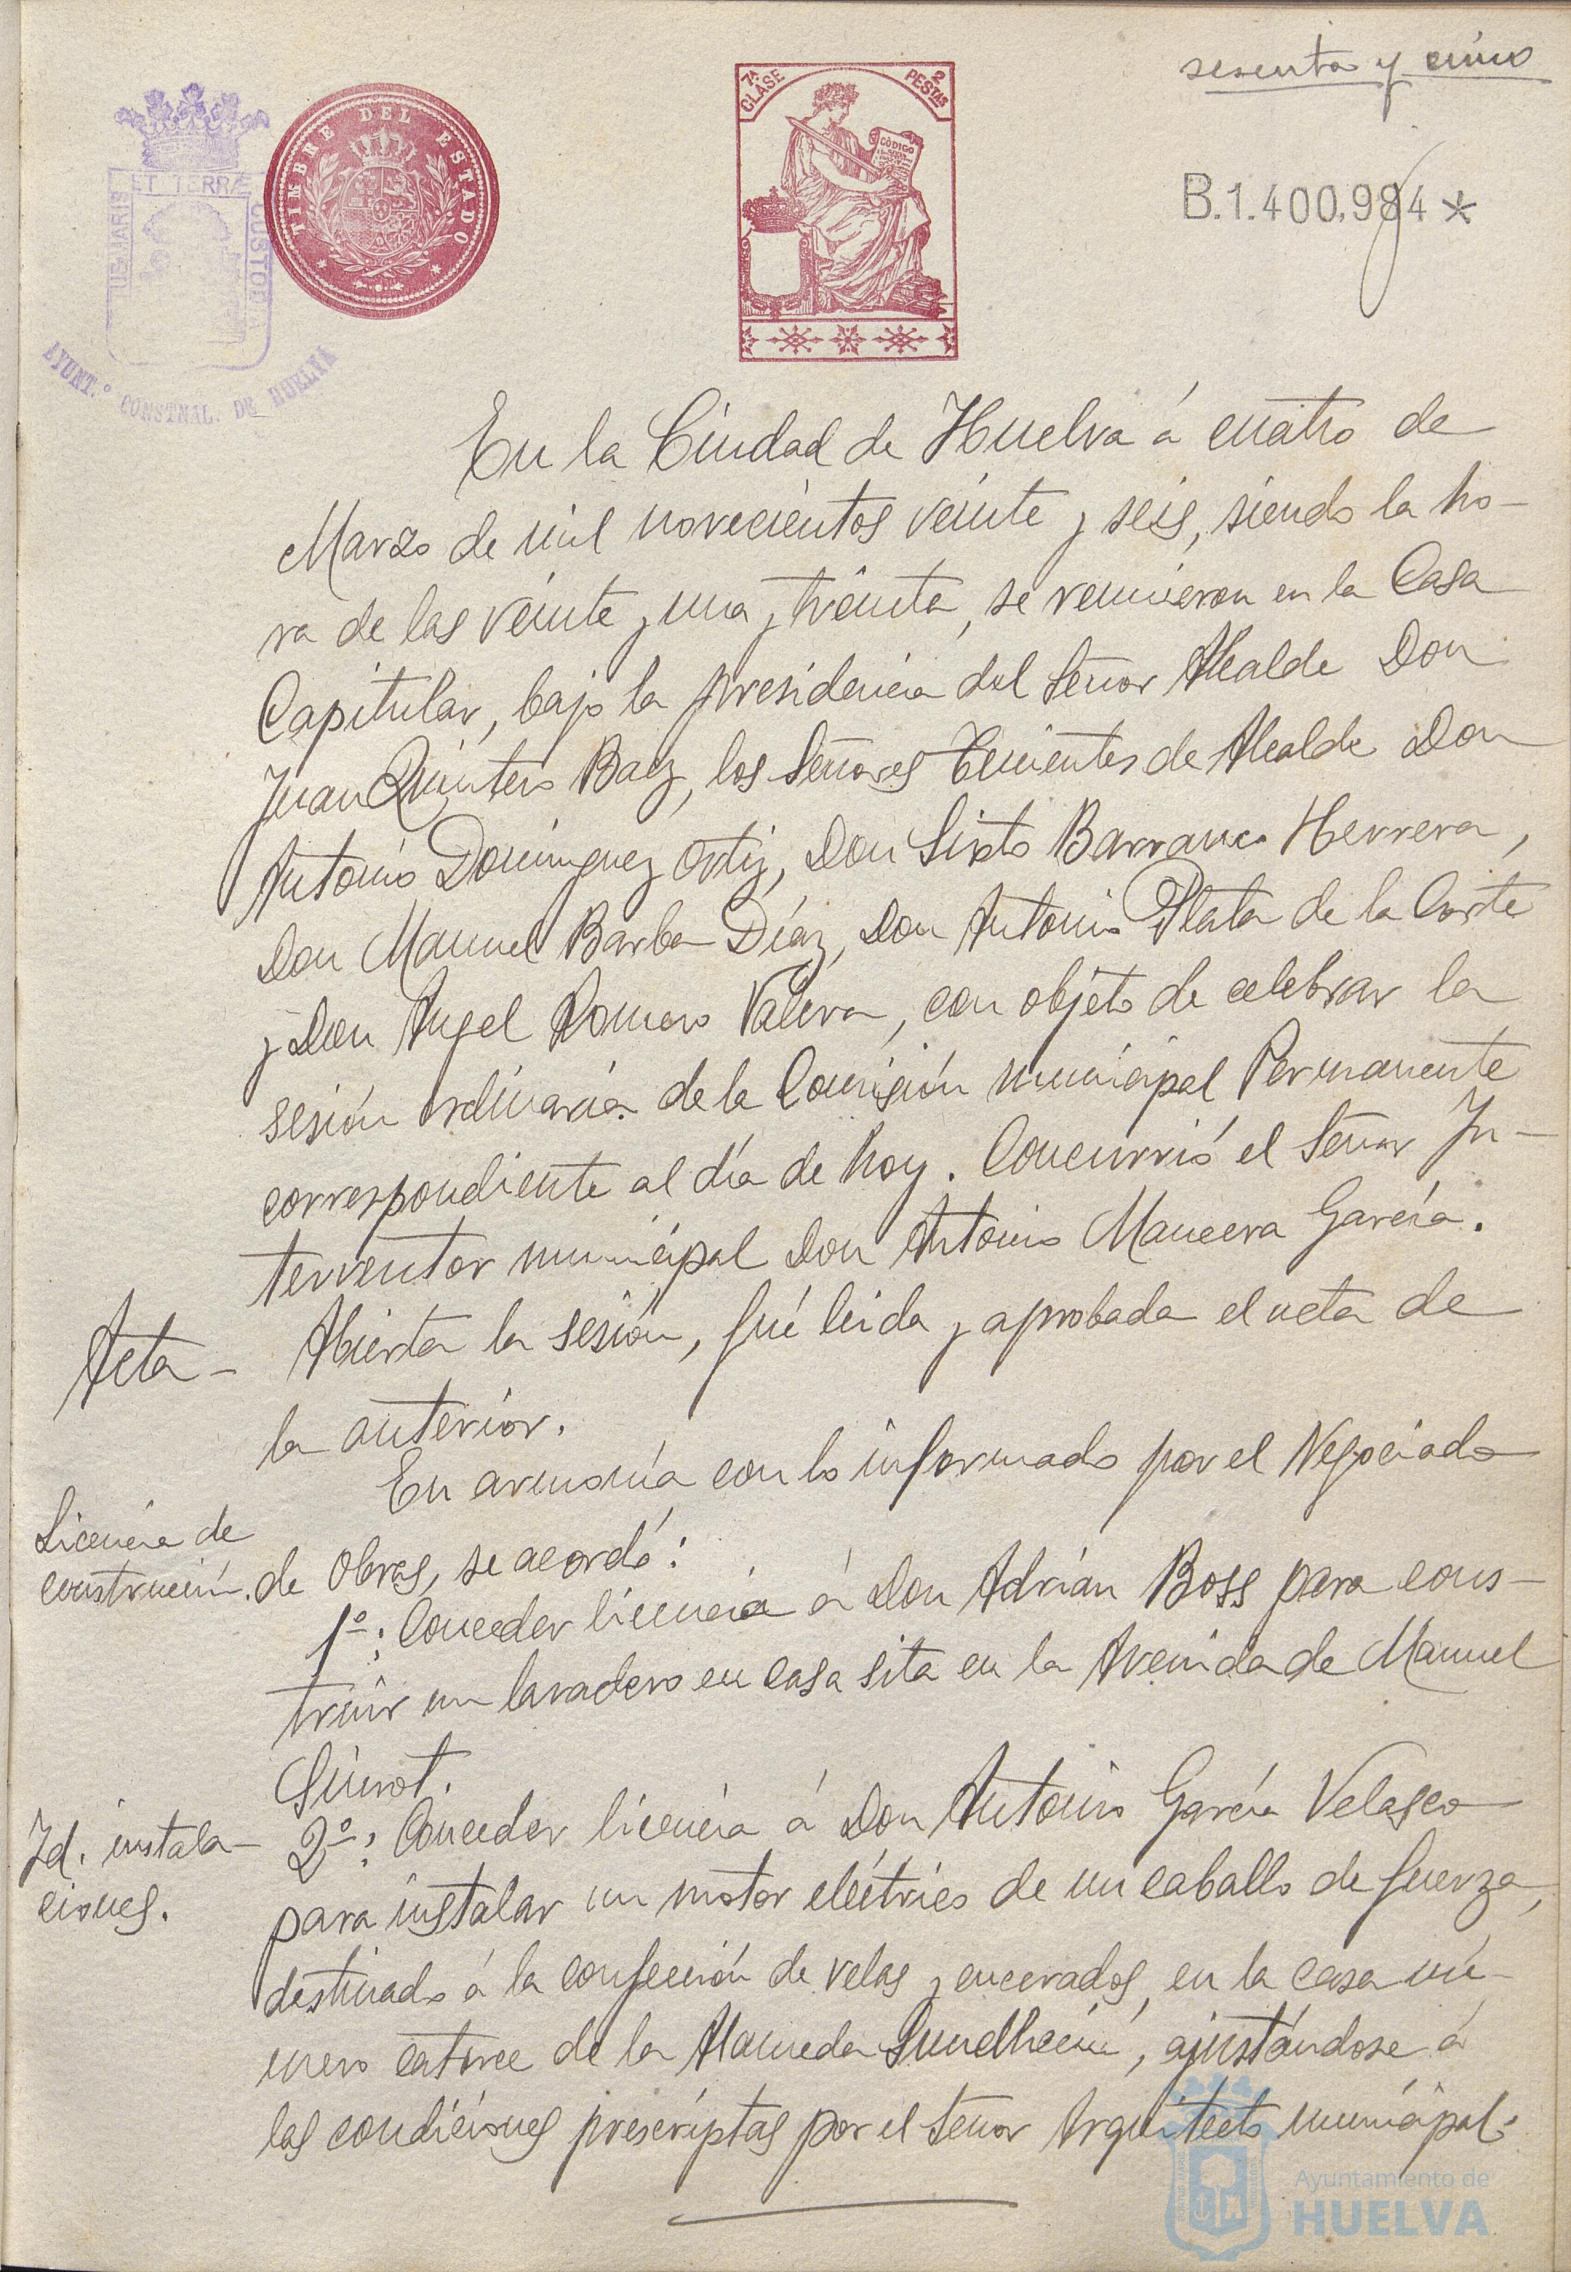 sesenta y cinco
7ª CLASE
2 PESTAS
CÓDIGO
TIMBRE DEL ESTADO
ET TERRÆ
CUSTODIA
AYUNT.º CONSTNAL. DE HUELVA
B.1.400,984 *
En la Ciudad de Huelva á cuatro de
Marzo de mil novecientos veinte y seis, siendo la ho-
ra de las veinte y una y treinta, se reunieron en la Casa
Capitular, bajo la presidencia del Señor Alcalde Don
Juan Quintero Baez, los Señores Tenientes de Alcalde Don
Antonio Dominguez Ortiz, Don Sixto Barranco Herrera,
Don Manuel Barba Díaz, Don Antonio Plata de la Corte
y Don Angel Romero Valera, con objeto de celebrar la
sesión ordinaria de la Comisión municipal Permanente
correspondiente al día de hoy. Concurrió el Señor In-
terventor municipal Don Antonio Mancera García.
Acta- Abierta la sesión, fué leida y aprobada el acta de
la anterior.
En armonía con lo informado por el Negociado
Licencia de
construcción. de Obras, se acordó:
1º: Conceder licencia á Don Adrián Boss para cons-
truir un lavadero en casa sita en la Avenida de Manuel
Siurot.
Id. instala- 2º: Conceder licencia á Don Antonio García Velasco
ciones. para instalar un motor eléctrico de un caballo de fuerza,
destinado á la confección de velas y encerados, en la casa nú-
mero catorce de la Alameda Sundheim, ajustándose á
las condiciones prescriptas por el Señor Arquitecto municipal.
Ayuntamiento de
HUELVA